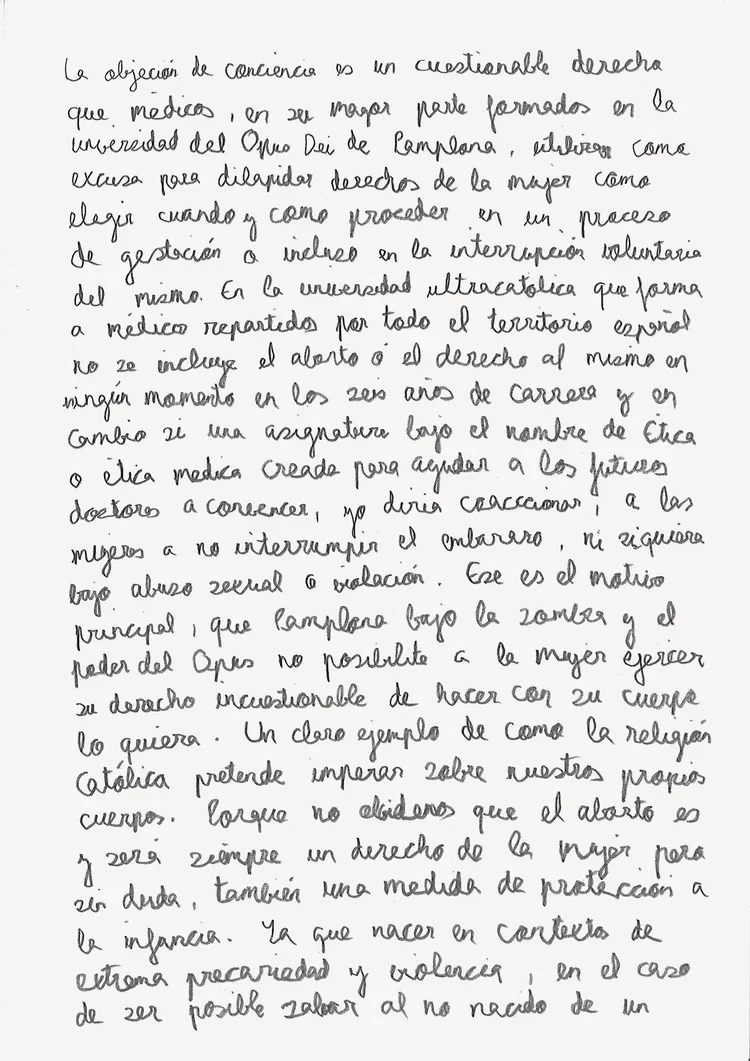 La objeción de conciencia es un cuestionable derecho
que médicos, en su mayor parte formados en la
universidad del Opus Dei de Pamplona, utilizan como
excusa para dilapidar derechos de la mujer como
elegir cuando y como proceder en un proceso
de gestación o incluso en la interrupción voluntaria
del mismo. En la universidad ultracatolica que forma
a médicos repartidos por todo el territorio español
no se incluye el aborto ó el derecho al mismo en
ningún momento en los seis años de carrera y en
cambio si una asignatura bajo el nombre de Etica
o etica medica creada para ayudar a los futuros
doctores a convencer, yo diria coaccionar, a las
mujeres a no interrumpir el embarazo, ni siquiera
bajo abuso sexual o violación. Ese es el motivo
principal, que Pamplona bajo la sombra y el
poder del Opus no posibilite a la mujer ejercer
su derecho incuestionable de hacer con su cuerpo
lo quiera. Un claro ejemplo de como la religión
Católica pretende imperar sobre nuestros propios
cuerpos. Porque no olvidemos que el aborto es
y será siempre un derecho de la mujer pero
sin duda, también una medida de protección a
la infancia. Ya que nacer en contextos de
extrema precariedad y violencia, en el caso
de ser posible salvar al no nacido de un